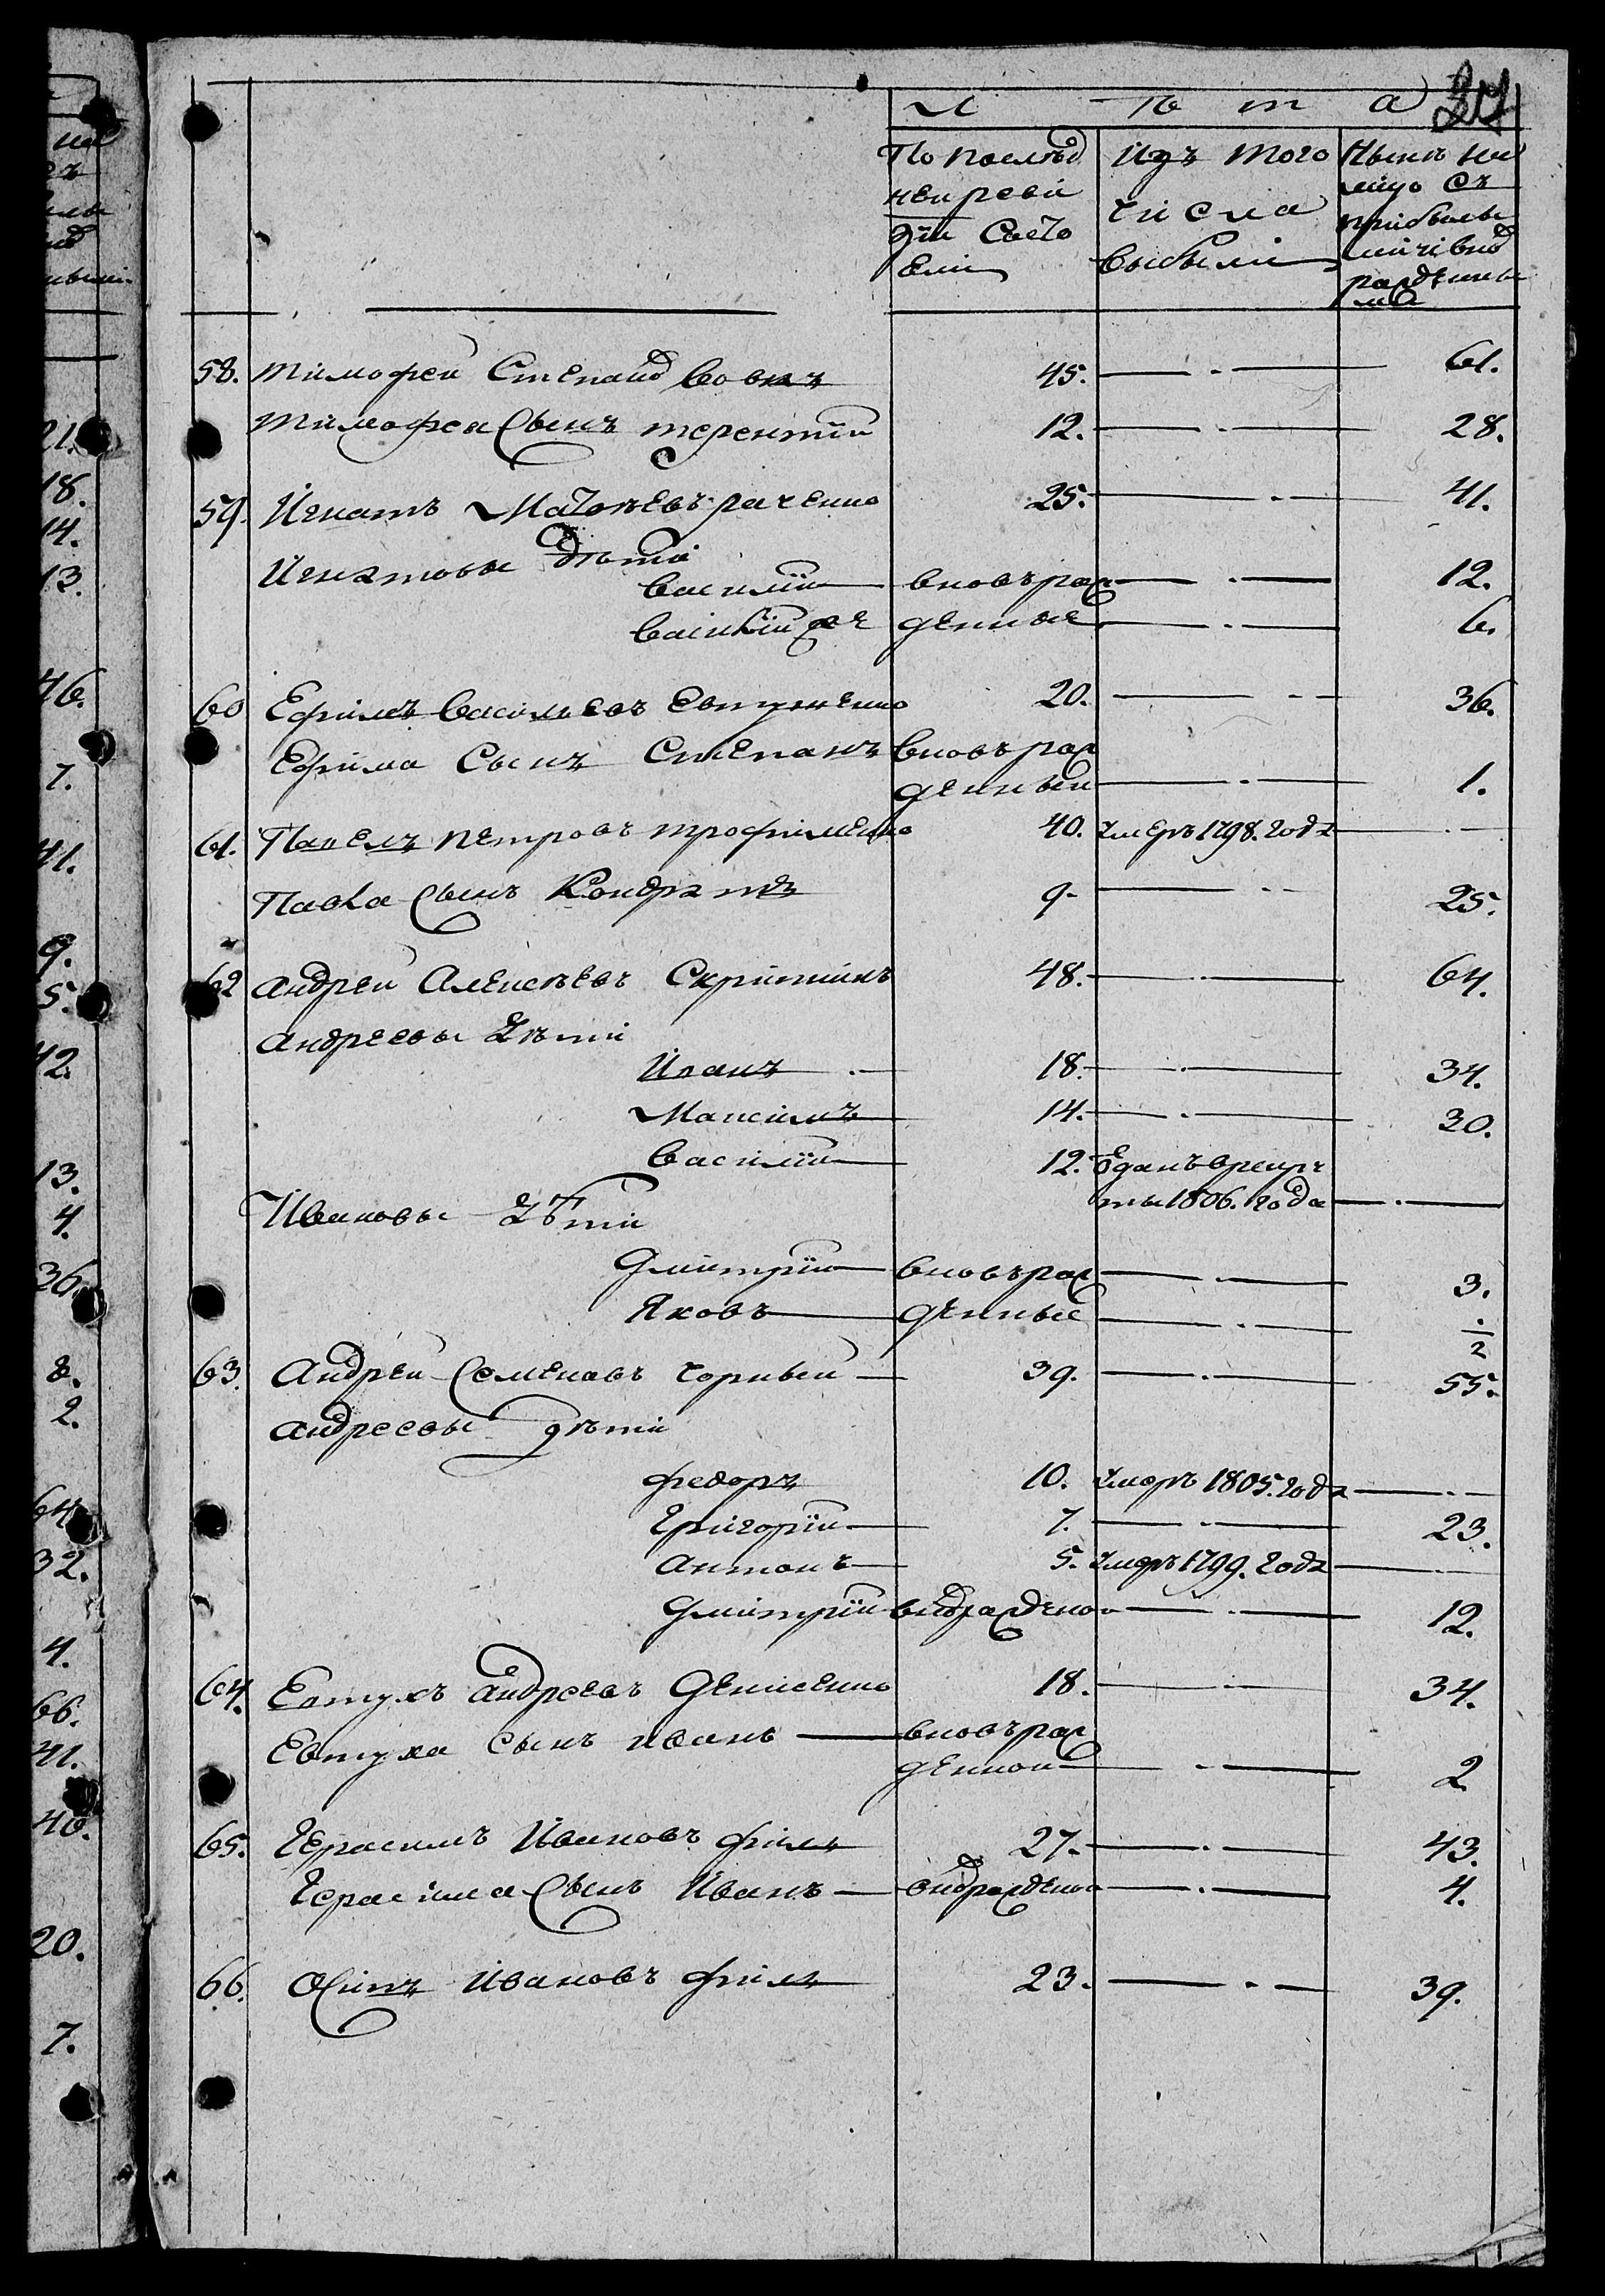 Л ѣ т а 27
По послѣд
ней ревизіи состоели
Изъ того
числа
выбыли
Нынѣ на
лицо съ
прибылы
ми и внов
рожденны
ми
58. Тимофей Степанов Вовкъ 45. 61.
Тимофея сынъ терентій 12. 28.
59. Игнатъ Матвѣевъ 25. 41.
Игнатовы дѣти
василій вновърож 12.
василій же денные 6.
60 Ефимъ Васильевъ Евтушенко 20. 36.
Ефима Сынъ Степанъ вновърож
денный 1.
61. Павелъ петровъ трофименко 40. умеръ 1798. года
Павла сынъ Кондратъ 9. 25.
62 андрей Алексѣевъ Скрипникъ 48. 64.
андреевы дѣти
Иванъ 18. 34.
Максимъ 14. 30.
василій 12. Зданъ врекру
ты 1806. года
Ивановы дѣти
Дмитрій вновърож 3.
Яковъ денные 1/2
63. Андрей Семеновъ чорный 39. 55.
андреевы дѣти
федоръ 10. умеръ 1805. года
Григорій 7. 23.
антонъ 5. умеръ 1799. года
Дмитрій внов рожденой 12.
64. Евтухъ андреевъ Денисенко 18. 34.
Евтуха сынъ иванъ вновърож
денной 2
65. Герасимъ Ивановъ філь 27. 43.
Герасима сынъ Иванъ внов рожденой 4.
66. Осипъ Ивановъ філь 23. 39.
21.
18.
14.
13.
46.
7.
41.
9.
5.
42.
13.
4.
36.
8.
2.
64
32.
4.
66.
41.
40.
20.
7.